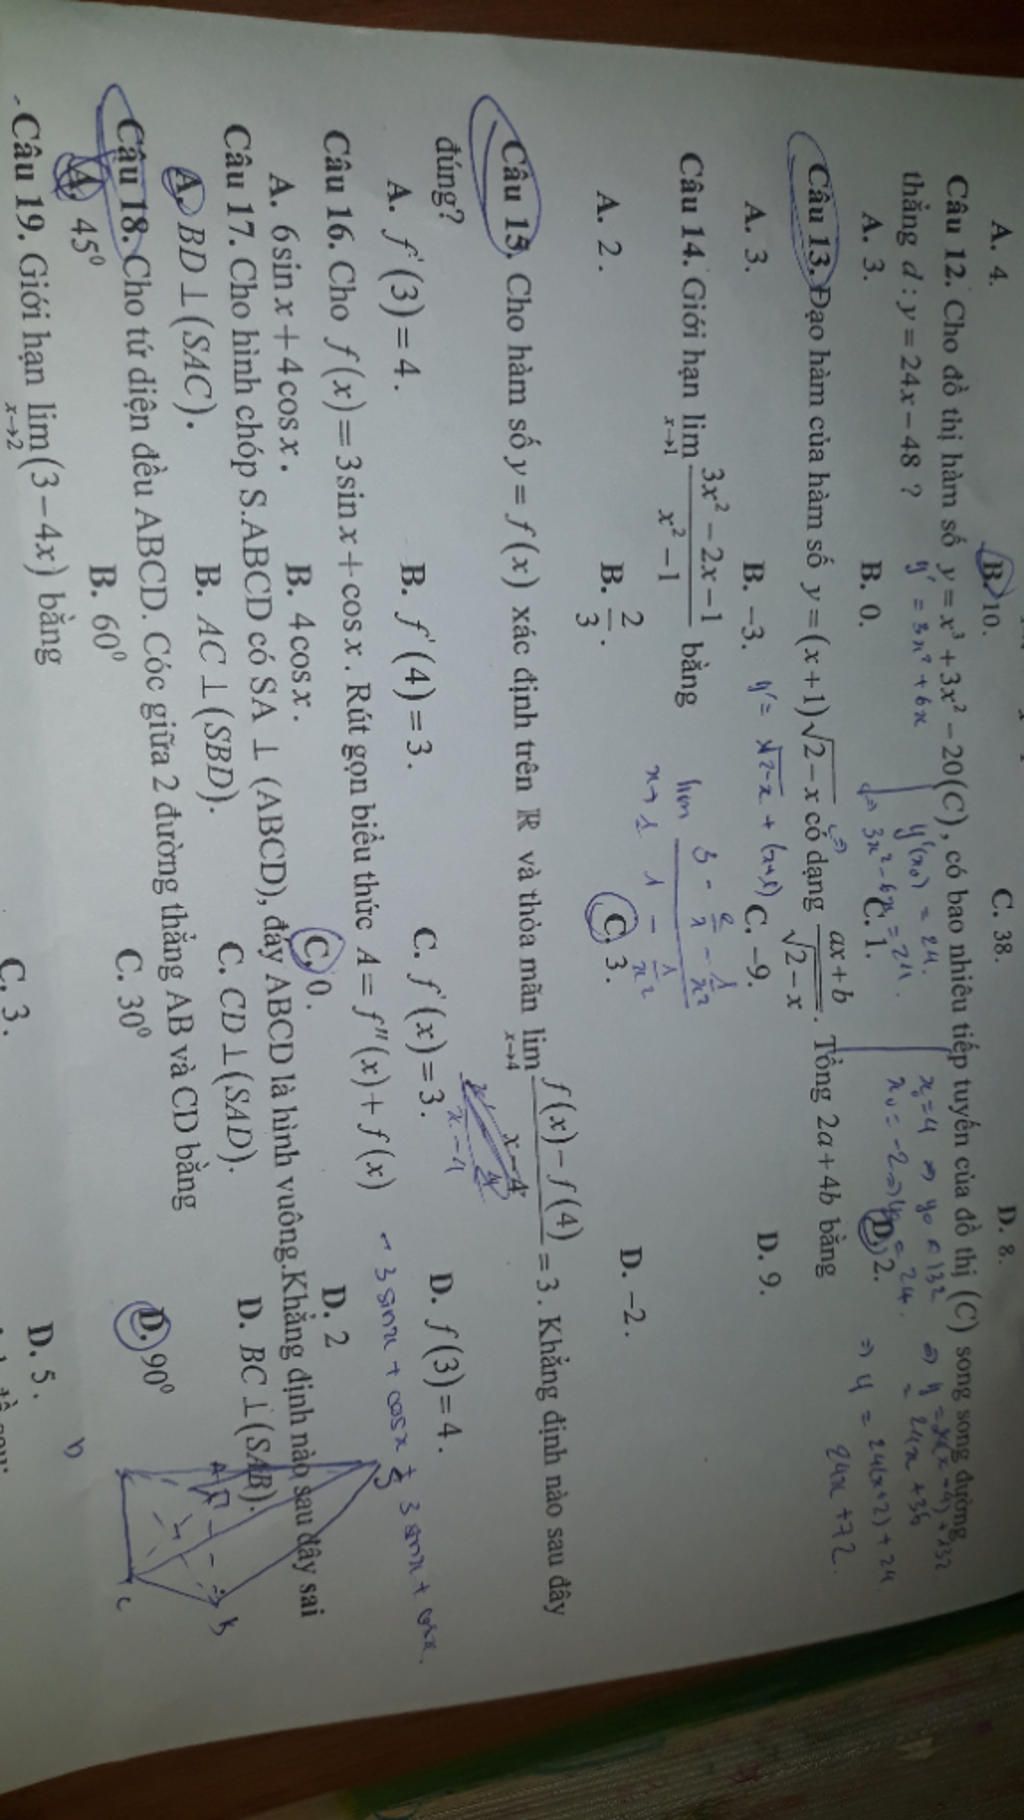 A. 4. B. 10. C. 38. D. 8.
Câu 12. Cho đồ thị hàm số y = x³ + 3x² − 20(C), có bao nhiêu tiếp tuyến của đồ thị (C) song song đường
thẳng d : y = 24x − 48 ?
y' = 3x² + 6x
y'(x₀) = 24.
3x² − 6x = 24.
x₀ = 4 ⇒ y₀ = 132
x₀ = −2 ⇒ y₀ = 24.
⇒ y = 24(x − 4) + 132
= 24x + 36
⇒ y = 24(x+2) + 24
24x + 72.
A. 3. B. 0. C. 1. D. 2.
Câu 13. Đạo hàm của hàm số y = (x+1)√(2−x) có dạng (ax+b)/√(2−x). Tổng 2a + 4b bằng
A. 3. B. −3. C. −9. D. 9.
y' = √2−x + (x+1)
Câu 14. Giới hạn lim x→1 (3x² − 2x − 1)/(x² − 1) bằng
lim x→1 (3 − 2/x − 1/x²)/(1 − 1/x²)
A. 2. B. 2/3. C. 3. D. −2.
Câu 15. Cho hàm số y = f(x) xác định trên ℝ và thỏa mãn lim x→4 (f(x) − f(4))/(x − 4) = 3. Khẳng định nào sau đây
đúng?
x − 4
A. f'(3) = 4. B. f'(4) = 3. C. f'(x) = 3. D. f(3) = 4.
Câu 16. Cho f(x) = 3sin x + cos x. Rút gọn biểu thức A = f''(x) + f(x)
− 3 sinx + cosx + 3 sinx + cosx.
A. 6sin x + 4cos x. B. 4cos x. C. 0. D. 2
Câu 17. Cho hình chóp S.ABCD có SA ⊥ (ABCD), đáy ABCD là hình vuông.Khẳng định nào sau đây sai
A. BD ⊥ (SAC). B. AC ⊥ (SBD). C. CD ⊥ (SAD). D. BC ⊥ (SAB).
Câu 18. Cho tứ diện đều ABCD. Cóc giữa 2 đường thẳng AB và CD bằng
A. 45⁰ B. 60⁰ C. 30⁰ D. 90⁰
Câu 19. Giới hạn lim x→2 (3 − 4x) bằng
C. 3. D. 5.